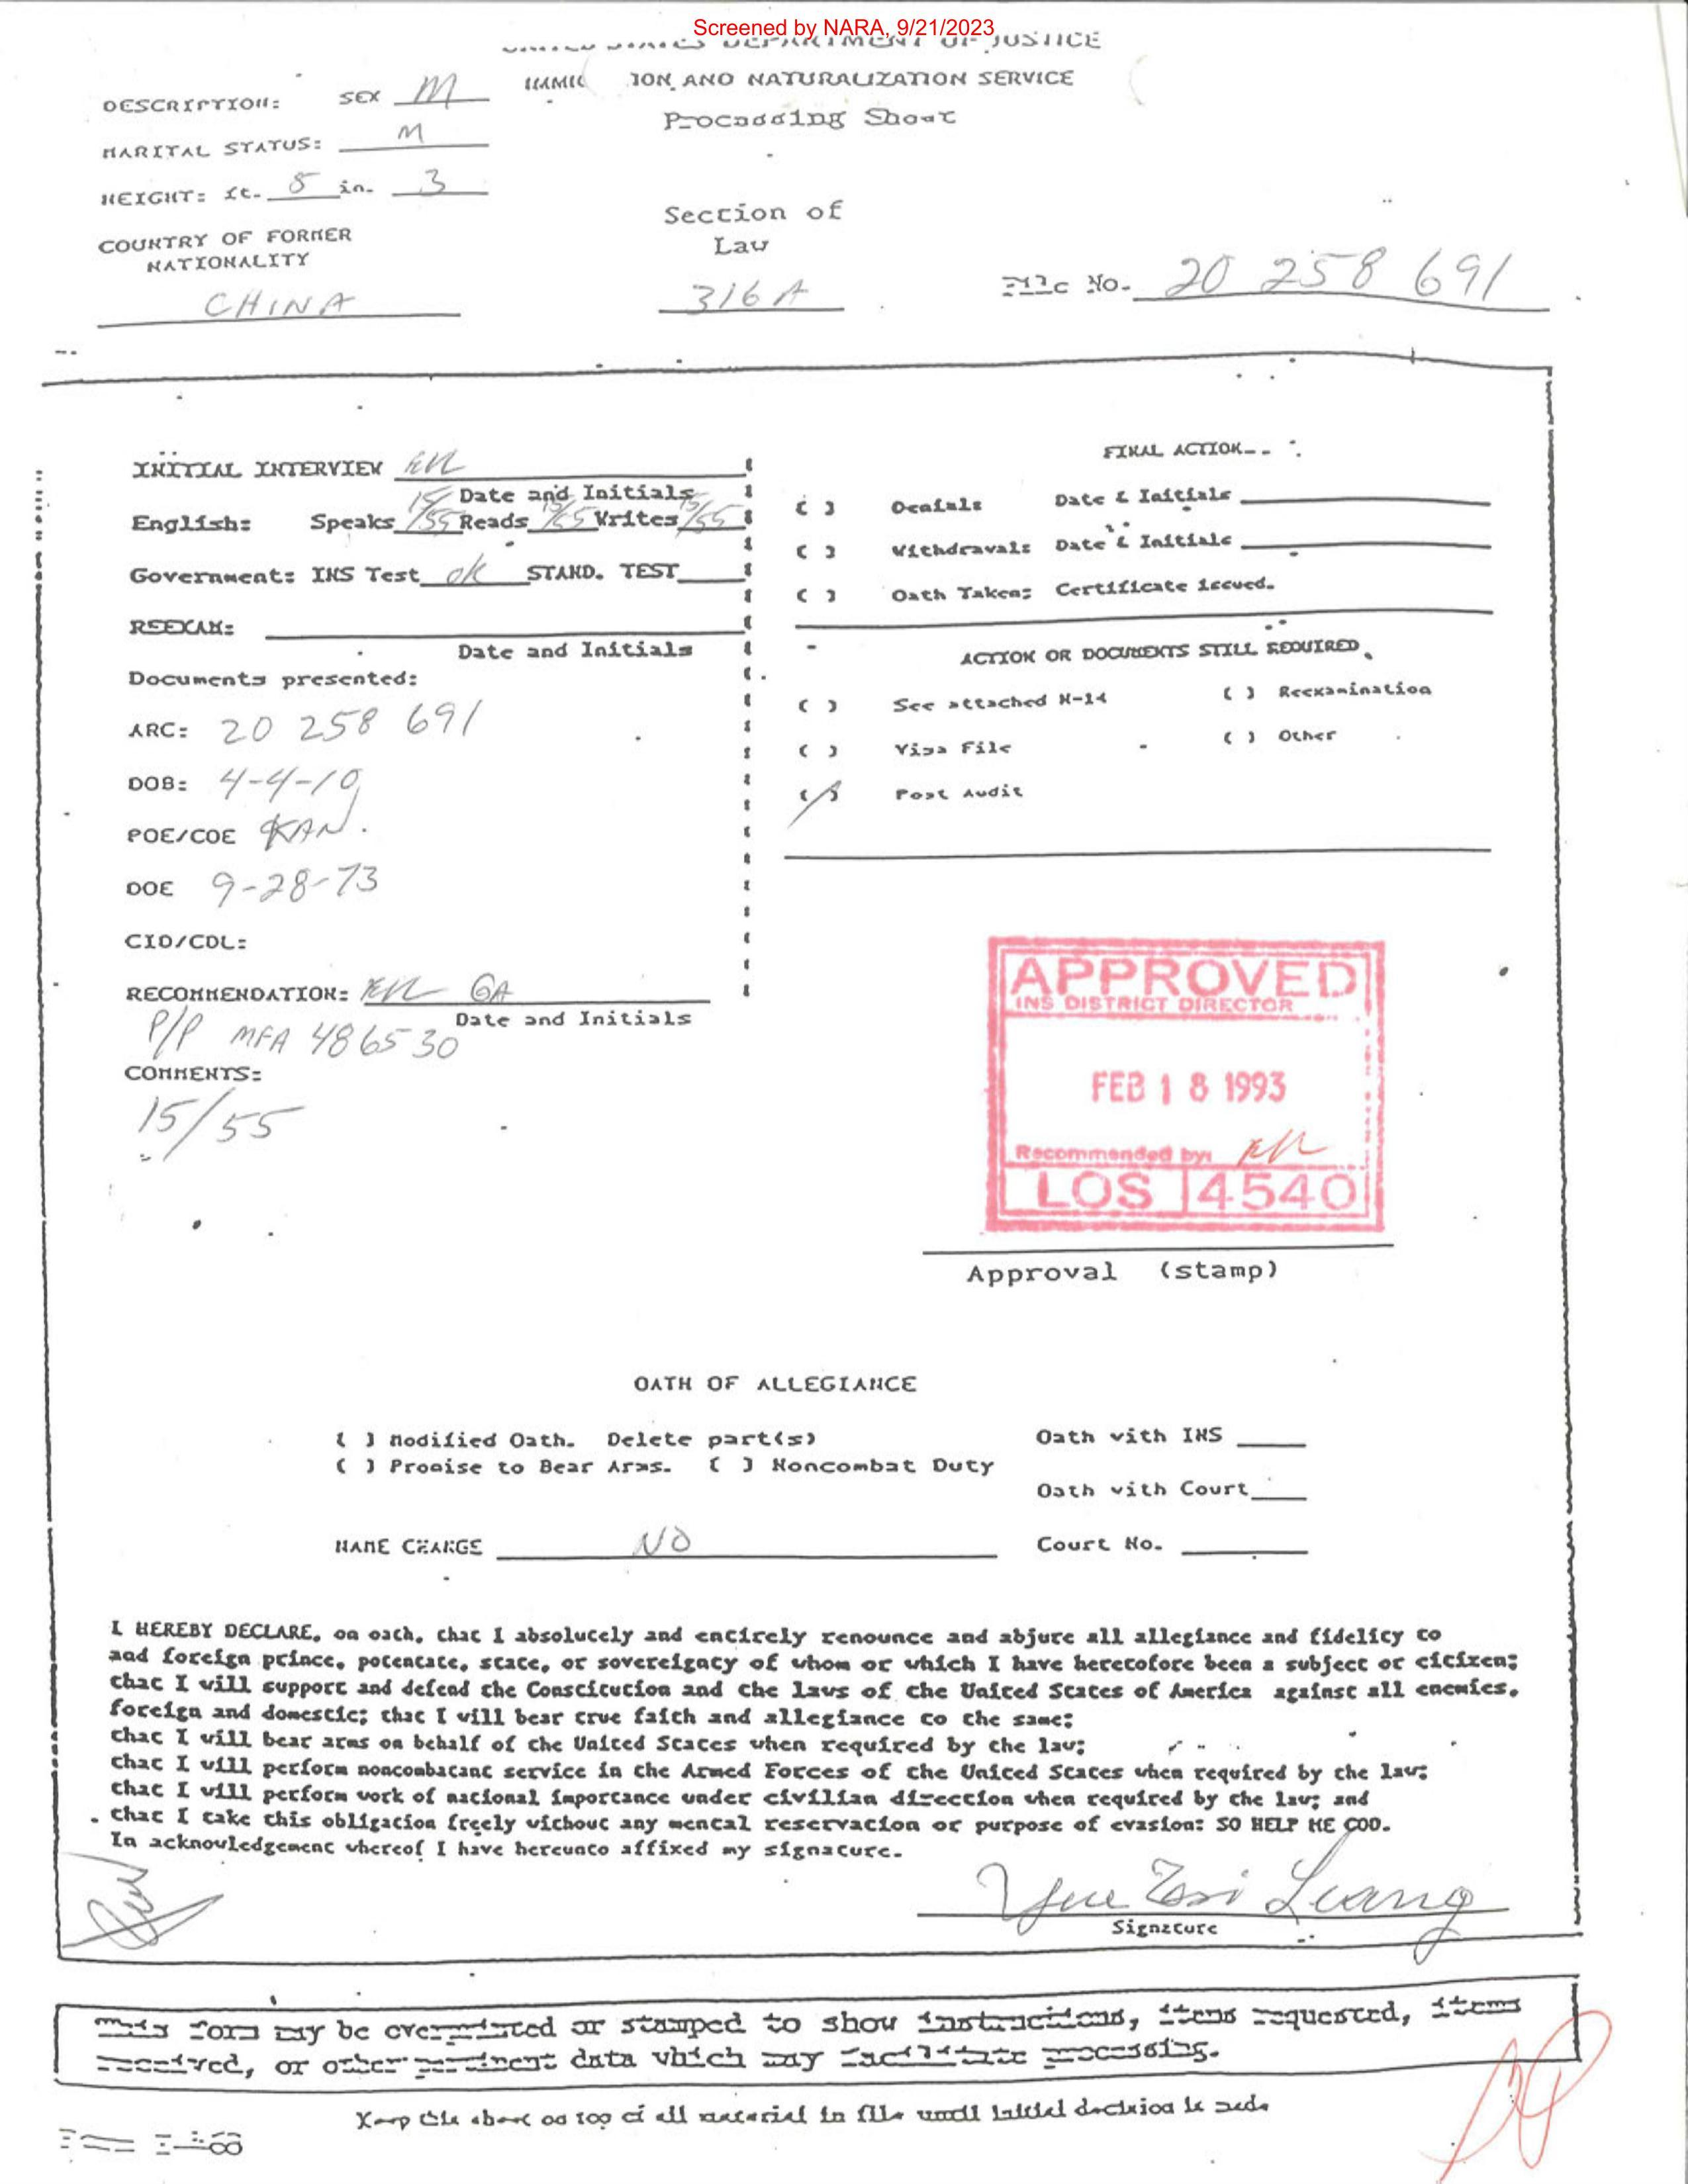 Screened by NARA, 9/21/2023
UNITED STATES DEPARTMENT OF JUSTICE
IMMIG ION AND NATURALIZATION SERVICE
Processing Sheet
DESCRIPTION: SEX M
MARITAL STATUS: M
HEIGHT: ft. 5 in. 3
COUNTRY OF FORMER
NATIONALITY
CHINA
Section of
Law
316A
File No. 20 258 691
INITIAL INTERVIEW
Date and Initials
English: Speaks 15/55 Reads 15/55 Writes 15/55
Government: INS Test ok STAND. TEST
REEXAM:
Date and Initials
Documents presented:
ARC: 20 258 691
DOB: 4-4-10
POE/COE KAN.
DOE 9-28-73
CIO/CDL:
RECOMMENDATION: GA
Date and Initials
P/P MFA 486530
COMMENTS:
15/55
FINAL ACTION--
( ) Denial: Date & Initials
( ) Withdrawal: Date & Initials
( ) Oath Taken: Certificate issued.
ACTION OR DOCUMENTS STILL REQUIRED.
( ) See attached N-14 ( ) Reexamination
( ) Visa File ( ) Other
(/) Post Audit
APPROVED
INS DISTRICT DIRECTOR
FEB 18 1993
Recommended by:
LOS 4540
Approval (stamp)
OATH OF ALLEGIANCE
( ) Modified Oath. Delete part(s)
( ) Promise to Bear Arms. ( ) Noncombat Duty
Oath with INS
Oath with Court
NAME CHANGE NO
Court No.
I HEREBY DECLARE, on oath, that I absolutely and entirely renounce and abjure all allegiance and fidelity to
and foreign prince, potentate, state, or sovereignty of whom or which I have heretofore been a subject or citizen;
that I will support and defend the Constitution and the laws of the United States of America against all enemies,
foreign and domestic; that I will bear true faith and allegiance to the same;
that I will bear arms on behalf of the United States when required by the law;
that I will perform noncombatant service in the Armed Forces of the United States when required by the law;
that I will perform work of national importance under civilian direction when required by the law; and
that I take this obligation freely without any mental reservation or purpose of evasion: SO HELP ME GOD.
In acknowledgement whereof I have hereunto affixed my signature.
Yue Tsi Leang
Signature
This form may be overprinted or stamped to show instructions, items requested, items
received, or other pertinent data which may facilitate processing.
Keep this sheet on top of all material in file until initial decision is made